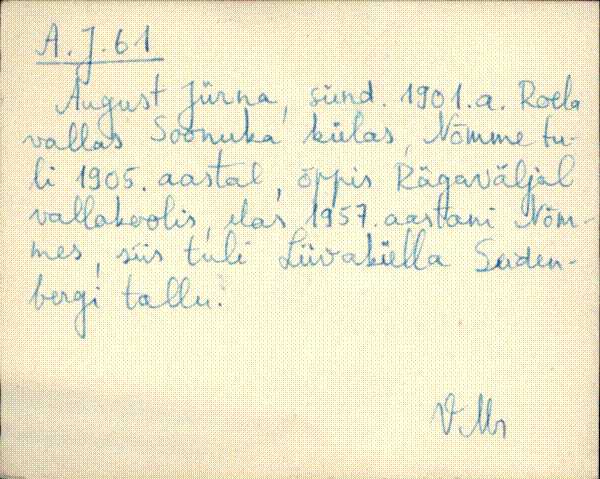 A.J.61
August Jürna, sünd. 1901.a. Roela
vallas Soonuka külas, Nõmme tu-
li 1905. aastal, õppis Rägaväljal
vallakoolis, elas 1957. aastani Nõm-
mes, siis tuli Liivakülla Seiden-
bergi tallu.
V.Mr